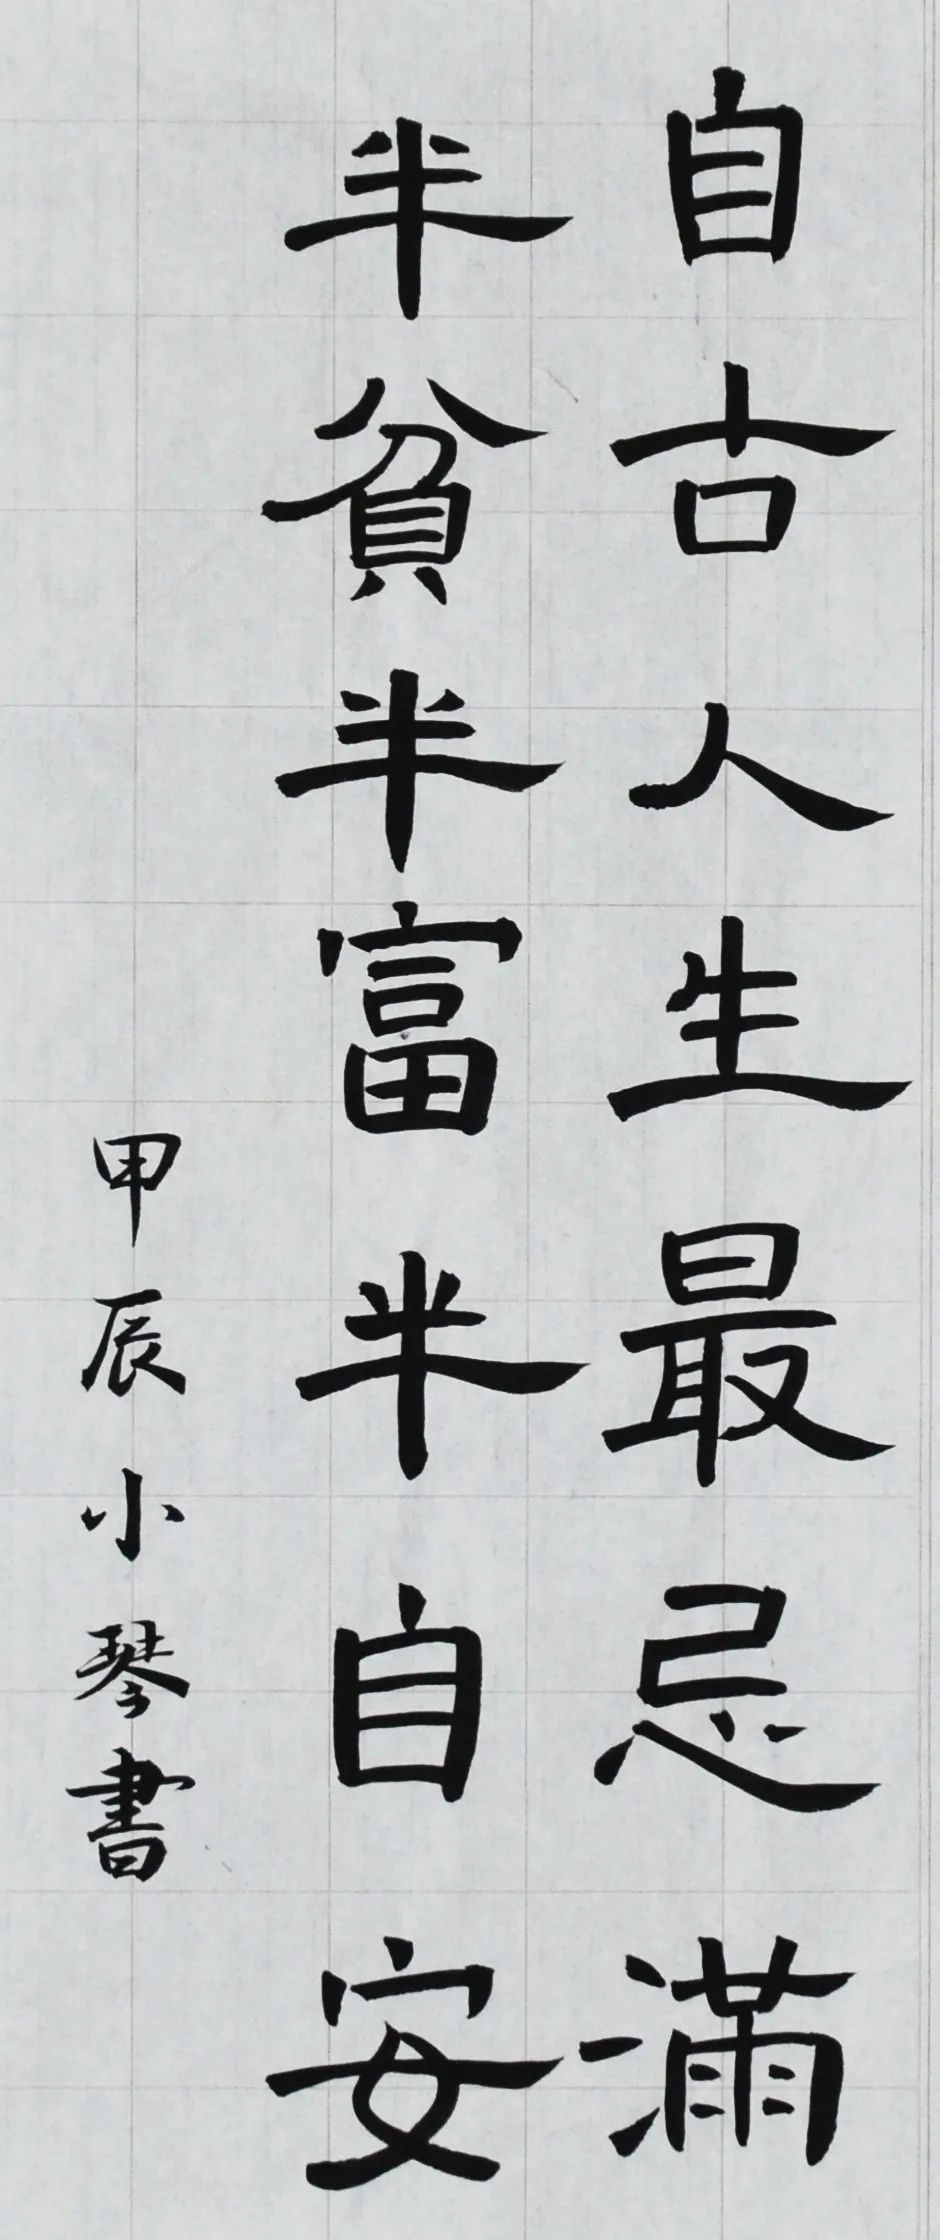 自古人生最忌滿
半貧半富半自安
甲辰小琴書